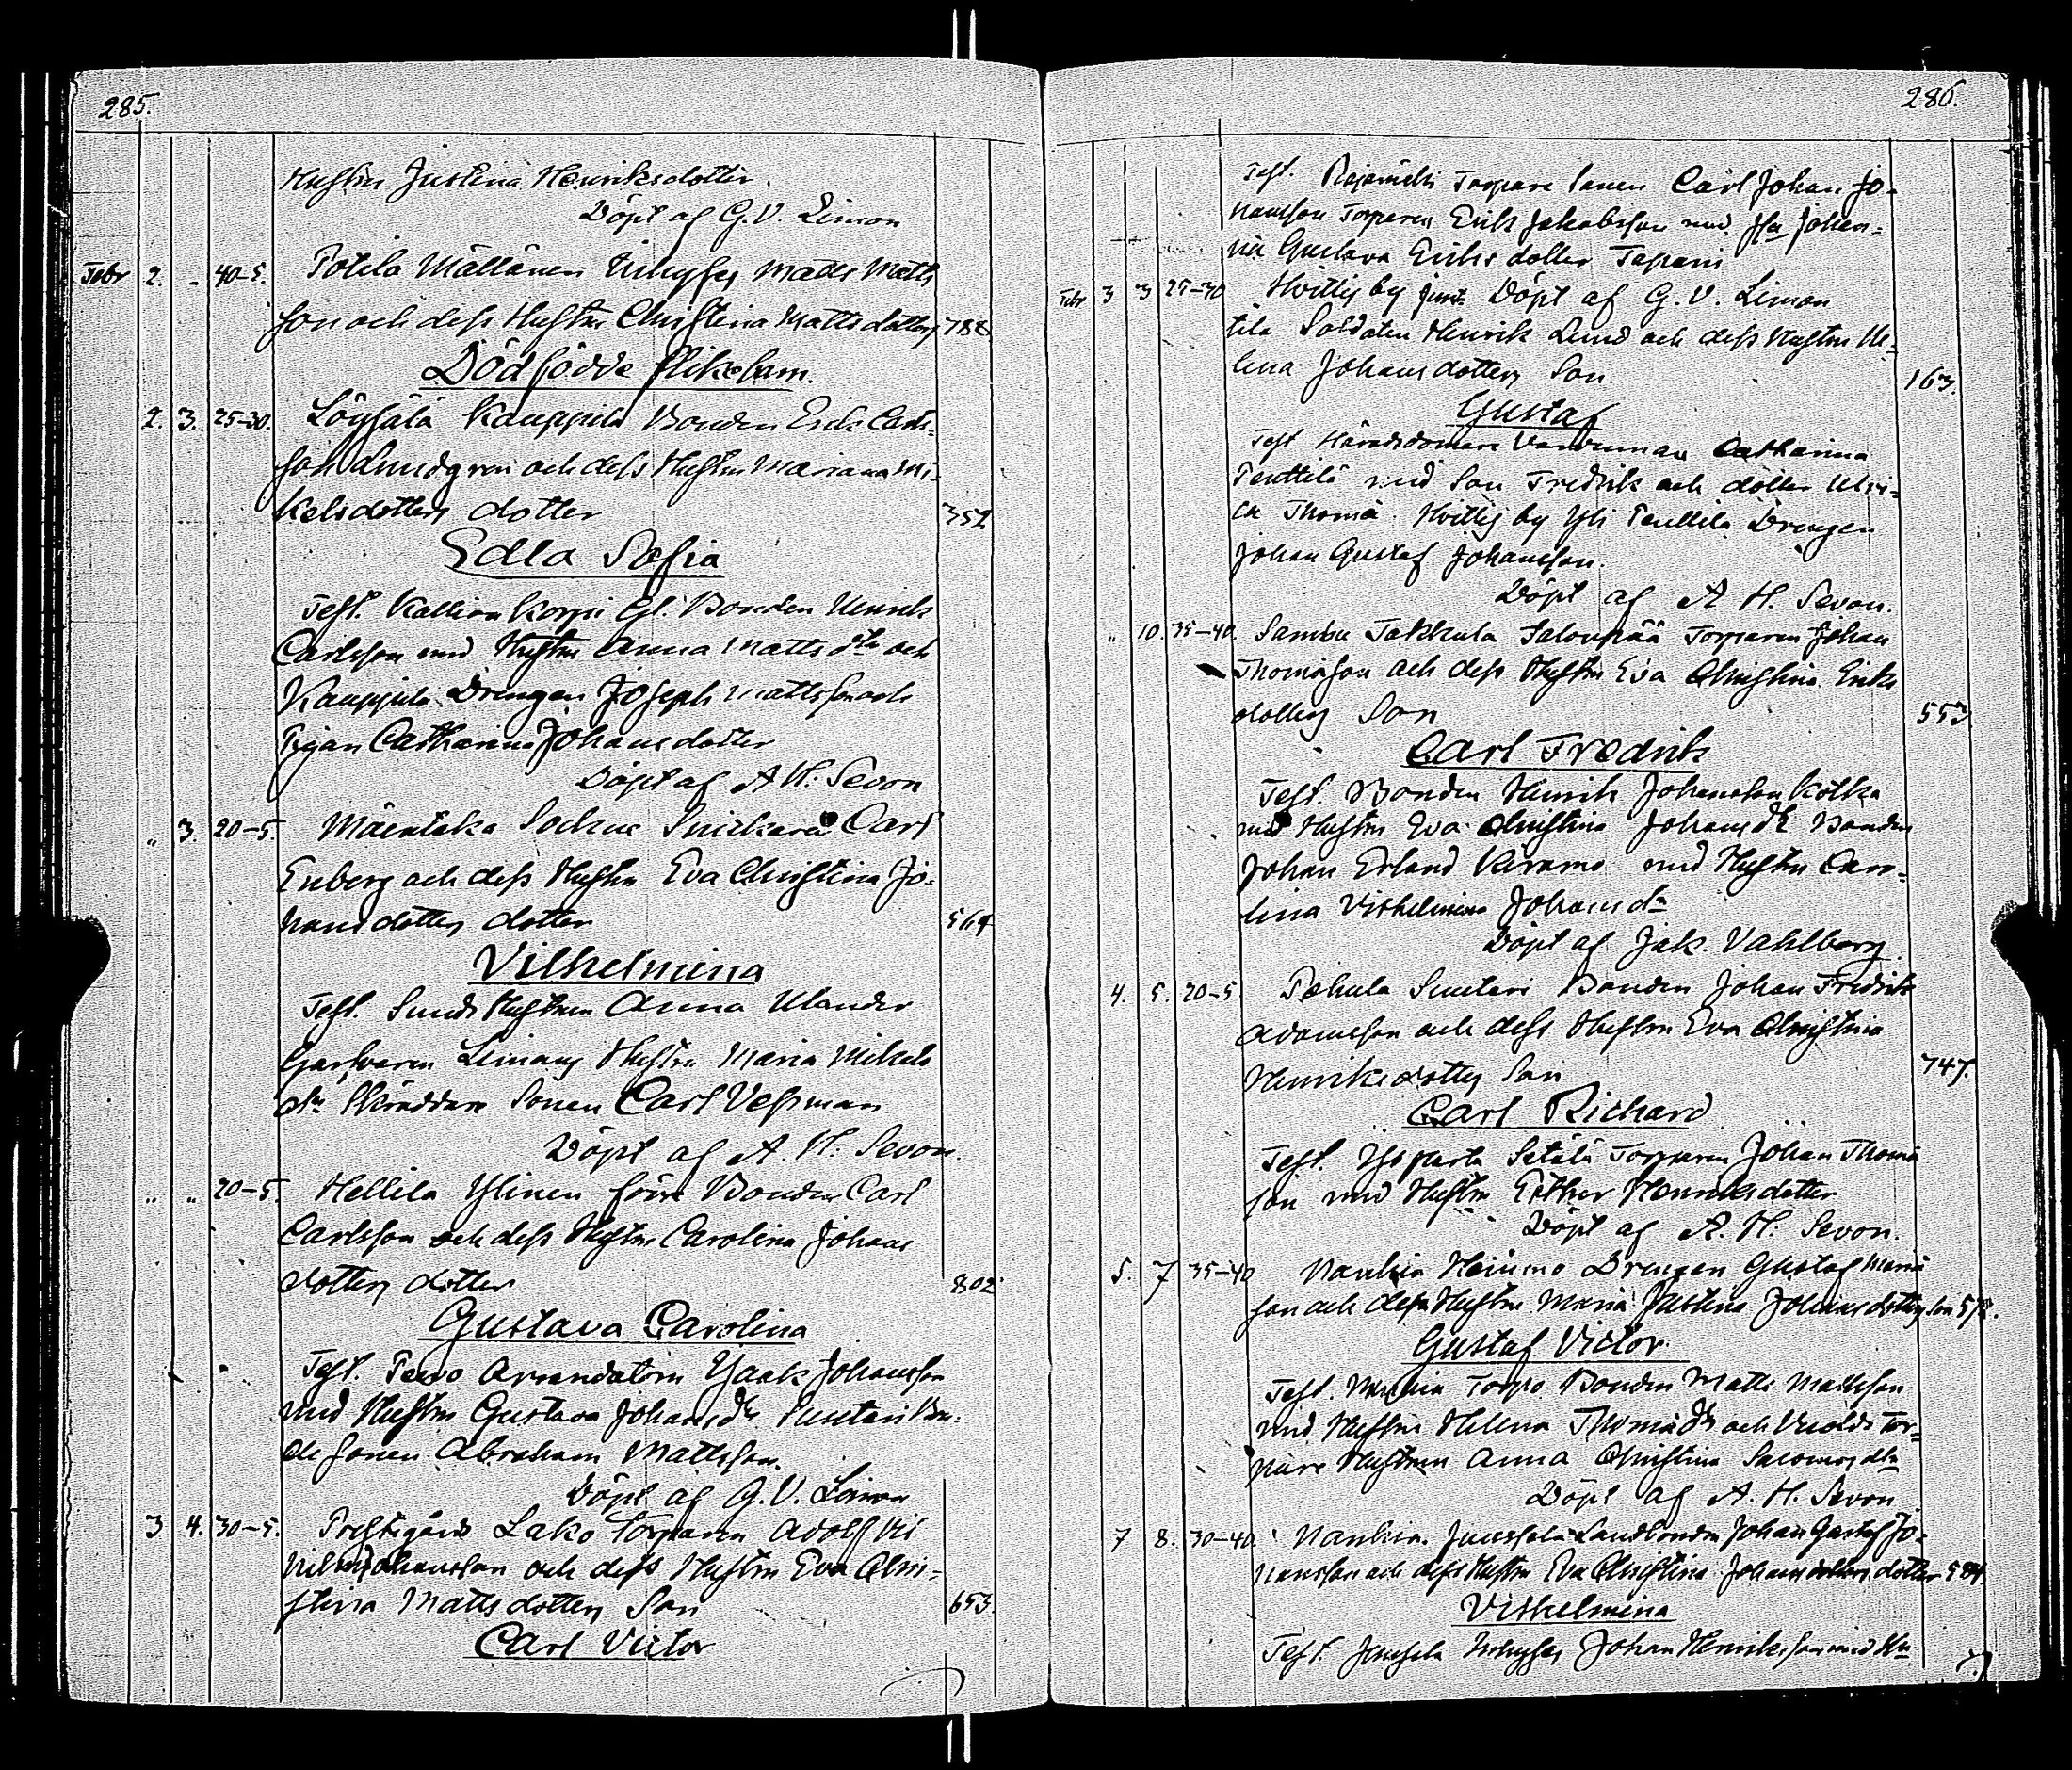 285.
Hustru Justina Henriksdotter.
Döpt af G. V. Limon
Febr 2. - 40-5. Potila Mällänen Inhyses Matts Matts
son och dess Hustru Christina Mattsdotters 782
Dödfödde flikebarn.
2. 3. 25-30. Löysälä Kauppila Bonden Erik Carls-
son Lundgren och dess Hustru Mariana Mi-
kelsdotters dotter 352
Edla Sofia
Test. Kallion Korpi Gl. Bonden Henrik
Carlsson med Hustru Anna Matts dtr och
Kauppila Drengen Joseph Mattsson och
Pigan Catharina Johansdotter
Döpt af A H. Sevon
„ 3. 20-5. Mäentaka Sockne Snickaren Carl
Enberg och dess Hustru Eva Christina Jo-
hansdotters dotter 564
Vilhelmina
Test. Sunds Hustrun Anna Ulander
Garfvaren Limans Hustru Maria Mikels
dtr Skräddare Sonen Carl Vessman
Döpt af A. H. Sevon.
„ „ 20-5. Hellila Ylinen förre Bonden Carl
Carlsson och dess Hustru Carolina Johans
dotters dotter 802
Gustava Carolina
Test. Arrendatorn Isaak Johansson
med Hustru Gustava Johansdtr Suutari Bon-
de sonen Abraham Mattsson.
Döpt af G. V. Limon
3 4. 30-5. Prestgårds Lako Torparen Adolf Vil
helm Johansson och dess Hustru Eva Chri-
stina Mattsdotters Son 653.
Carl Victor
286.
Test. Rajamäki Torpare Sonen Carl Johan Jo-
hansson Torparen Erik Jakobsson med Hu Johan-
na Gustava Eriksdotter Tapani
Febr 3 3 25-30 Hvittis by Döpt af G. V. Limon
tila Soldaten Henrik Lund och dess Hustru He-
lena Johansdotters Son 163.
Gustaf
Test Häradsdomare Catharina
Penttilä med Son Fredrik och dotter Ulri-
ca Thoma. Hvittis by Yli Penttilä Drengen
Johan Gustaf Johansson.
Döpt af A H. Sevon.
„ 10. 35-40. Sambu Takkula Salonpää Torparen Johan
Thomasson och dess Hustru Eva Christina Eriks
dotters Son 553
Carl Fredrik
Test. Bonden Henrik Johansson Kotka
med Hustru Eva Christina Johansdtr Bonden
Johan Erland med Hustru Caro-
lina Vilhelmina Johansdtr
Döpt af Jak. Vahlberg.
4. 5. 20-5 Pehula Suutari Bonden Johan Fredrik
Adamsson och dess Hustru Eva Christina
Henriksdotters Son 747.
Carl Richard
Test. Setälä Torparen Johan Thoma
son med Hustru Esther Henriksdotter
Döpt af A. H. Sevon.
5. 7 35-40 Nanhia Heinmo Drengen Gustaf
son och dess Hustru Maria Justina Johansdotters Son 572.
Gustaf Victor.
Test. Nanhia Torpo Bonden Matts Mattsson
med Hustru Helena Thomadtr och Tor-
pare Hustrun Anna Christina Salomonsdtr
Döpt af A. H. Sevon
7 8. 30-40. Nanhia. Junsola Landbonden Johan Gustaf Jo-
hansson och dess Hustru Eva Christina Johansdotters dotter 584.
Vilhelmina
Test. Inhyses Johan Henriksson med Hu